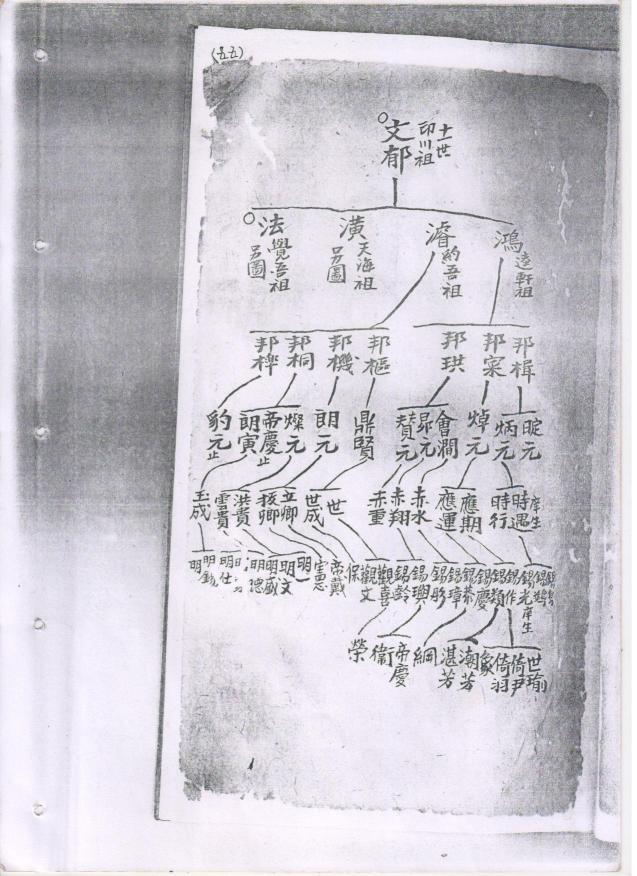 (五五)
十一世
印川祖
文郁
鴻 逵軒祖
濬 約吾祖
潢 天海祖 另圖
法 覺吾祖 另圖
邦楫 邦寀 邦珙 邦樞 邦機 邦桐 邦櫸
晸元 炳元 焯元 會澗 昴元 贊元 鼎賢 朗元 燦元 帝慶止 朗寅 豹元止
庠生 時遇 時行 應期 應運 赤水 赤翔 赤重 世 世成 立卿 拔卿 洪貴 雲貴 玉成
錫光庠生 錫作 錫類 錫慶 錫泰 錫璋 錫彤 錫興 錫齡 觀喜 觀文 保 帝戴 憲忠 明 明文 明盛 明德 明仕 明 明
世瑜 倚尹 倚羽 象 潮芳 湛芳 綱 帝慶 衞 榮